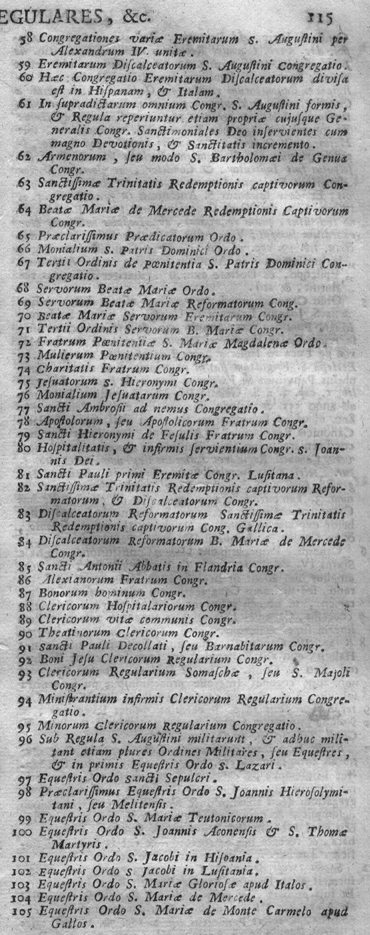 EGULARES, &c. 115
58 Congregationes variæ Eremitarum S. Augustini per
Alexandrum IV. unitæ.
59 Eremitarum Discalceatorum S. Augustini Congregatio.
60 Hæc Congregatio Eremitarum Discalceatorum divisa
est in Hispanam, & Italam.
61 In supradictarum omnium Congr. S. Augustini formis,
& Regula reperiuntur etiam propriæ cujusque Ge-
neralis Congr. Sanctimoniales Deo inservientes cum
magno Devotionis, & Sanctitatis incremento.
62 Armenorum, seu modo S. Bartholomæi de Genua
Congr.
63 Sanctissimæ Trinitatis Redemptionis captivorum Con-
gregatio.
64 Beatæ Mariæ de Mercede Redemptionis Captivorum
Congr.
65 Præclarissimus Prædicatorum Ordo.
66 Monialium S. Patris Dominici Ordo.
67 Tertii Ordinis de pœnitentia S. Patris Dominici Con-
gregatio.
68 Servorum Beatæ Mariæ Ordo.
69 Servorum Beatæ Mariæ Reformatorum Cong.
70 Beatæ Mariæ Servorum Eremitarum Congr.
71 Tertii Ordinis Servorum B. Mariæ Congr.
72 Fratrum Pœnitentiæ S. Mariæ Magdalenæ Ordo.
73 Mulierum Pœnitentium Congr.
74 Charitatis Fratrum Congr.
75 Jesuatorum S. Hieronymi Congr.
76 Monialium Jesuatarum Congr.
77 Sancti Ambrosii ad nemus Congregatio.
78 Apostolorum, seu Apostolicorum Fratrum Congr.
79 Sancti Hieronymi de Fesulis Fratrum Congr.
80 Hospitalitatis, & infirmis servientium Congr. S. Joan-
nis Dei.
81 Sancti Pauli primi Eremitæ Congr. Lusitana.
82 Sanctissimæ Trinitatis Redemptionis captivorum Refor-
matorum, & Discalceatorum Congr.
83 Discalceatorum Reformatorum Sanctissimæ Trinitatis
Redemptionis captivorum Cong. Gallica.
84 Discalceatorum Reformatorum B. Mariæ de Mercede
Congr.
85 Sancti Antonii Abbatis in Flandria Congr.
86 Alexianorum Fratrum Congr.
87 Bonorum hominum Congr.
88 Clericorum Hospitalariorum Congr.
89 Clericorum vitæ communis Congr.
90 Theatinorum Clericorum Congr.
91 Sancti Pauli Decollati, seu Barnabitarum Congr.
92 Boni Jesu Clericorum Regularium Congr.
93 Clericorum Regularium Somaschæ, seu S. Majoli
Congr.
94 Ministrantium infirmis Clericorum Regularium Congre-
gatio.
95 Minorum Clericorum Regularium Congregatio.
96 Sub Regula S. Augustini militarunt, & adhuc mili-
tant etiam plures Ordines Militares, seu Equestres,
& in primis Equestris Ordo S. Lazari.
97 Equestris Ordo Sancti Sepulcri.
98 Præclarissimus Equestris Ordo S. Joannis Hierosolymi-
tani, seu Melitensis.
99 Equestris Ordo S. Mariæ Teutonicorum.
100 Equestris Ordo S. Joannis Aconensis & S. Thomæ
Martyris.
101 Equestris Ordo S. Jacobi in Hispania.
102 Equestris Ordo S Jacobi in Lusitania.
103 Equestris Ordo S. Mariæ Gloriosæ apud Italos.
104 Equestris Ordo S. Mariæ de Mercede.
105 Equestris Ordo S. Mariæ de Monte Carmelo apud
Gallos.